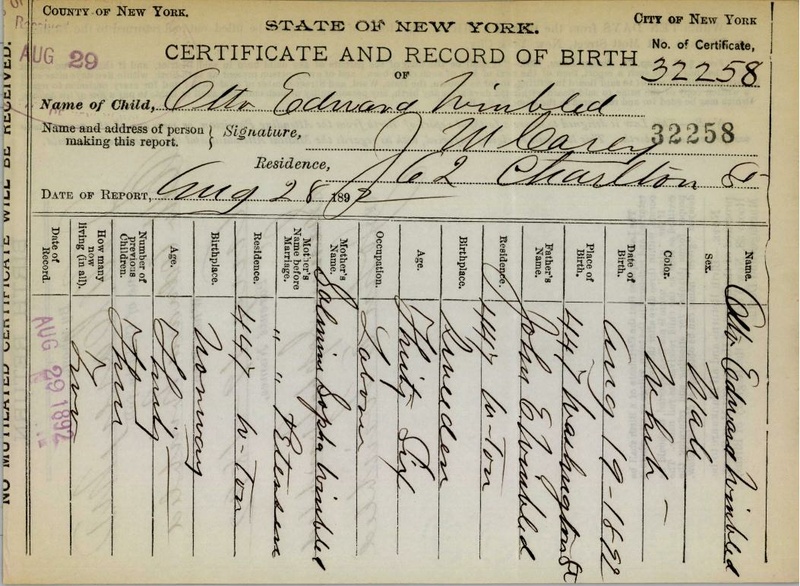 COUNTY OF NEW YORK.
CITY OF NEW YORK
STATE OF NEW YORK.
AUG 29
CERTIFICATE AND RECORD OF BIRTH
No. of Certificate,
32258
OF
Name of Child, Otto Edward Wimbled
Name and address of person making this report.
Signature, J M Carey
32258
Residence, 62 Charlton St
DATE OF REPORT, Aug 28 1892
Name. Otto Edward Wimbled
Sex. Male
Color. White
Date of Birth. Aug 19-1892
Place of Birth. 447 Washington St
Father's Name. John E Wimbled
Residence. 447 W-Ton
Birthplace. Sweden
Age. Thirty Six
Occupation. Labor
Mother's Name. Sophia Wimbled
Mother's Name before Marriage. " " Petersen
Residence. 447 W-Ton
Birthplace. Norway
Age. Thirty
Number of previous Children.
How many now living (in all).
Date of Record. AUG 29 1892
NO MUTILATED CERTIFICATE WILL BE RECEIVED.